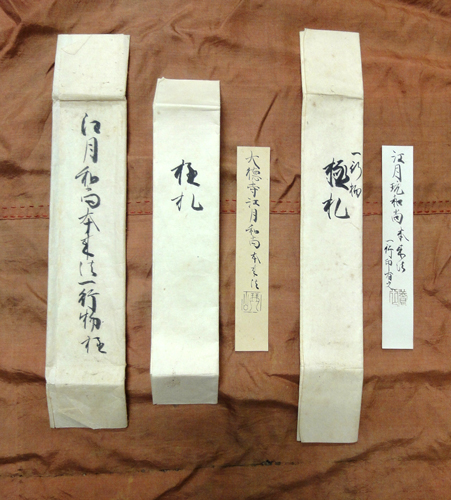 江月和尚本来法一行物極
極札
大徳寺江月和尚本来法
一行物
極札
江月玩和尚本来法
一行印有之